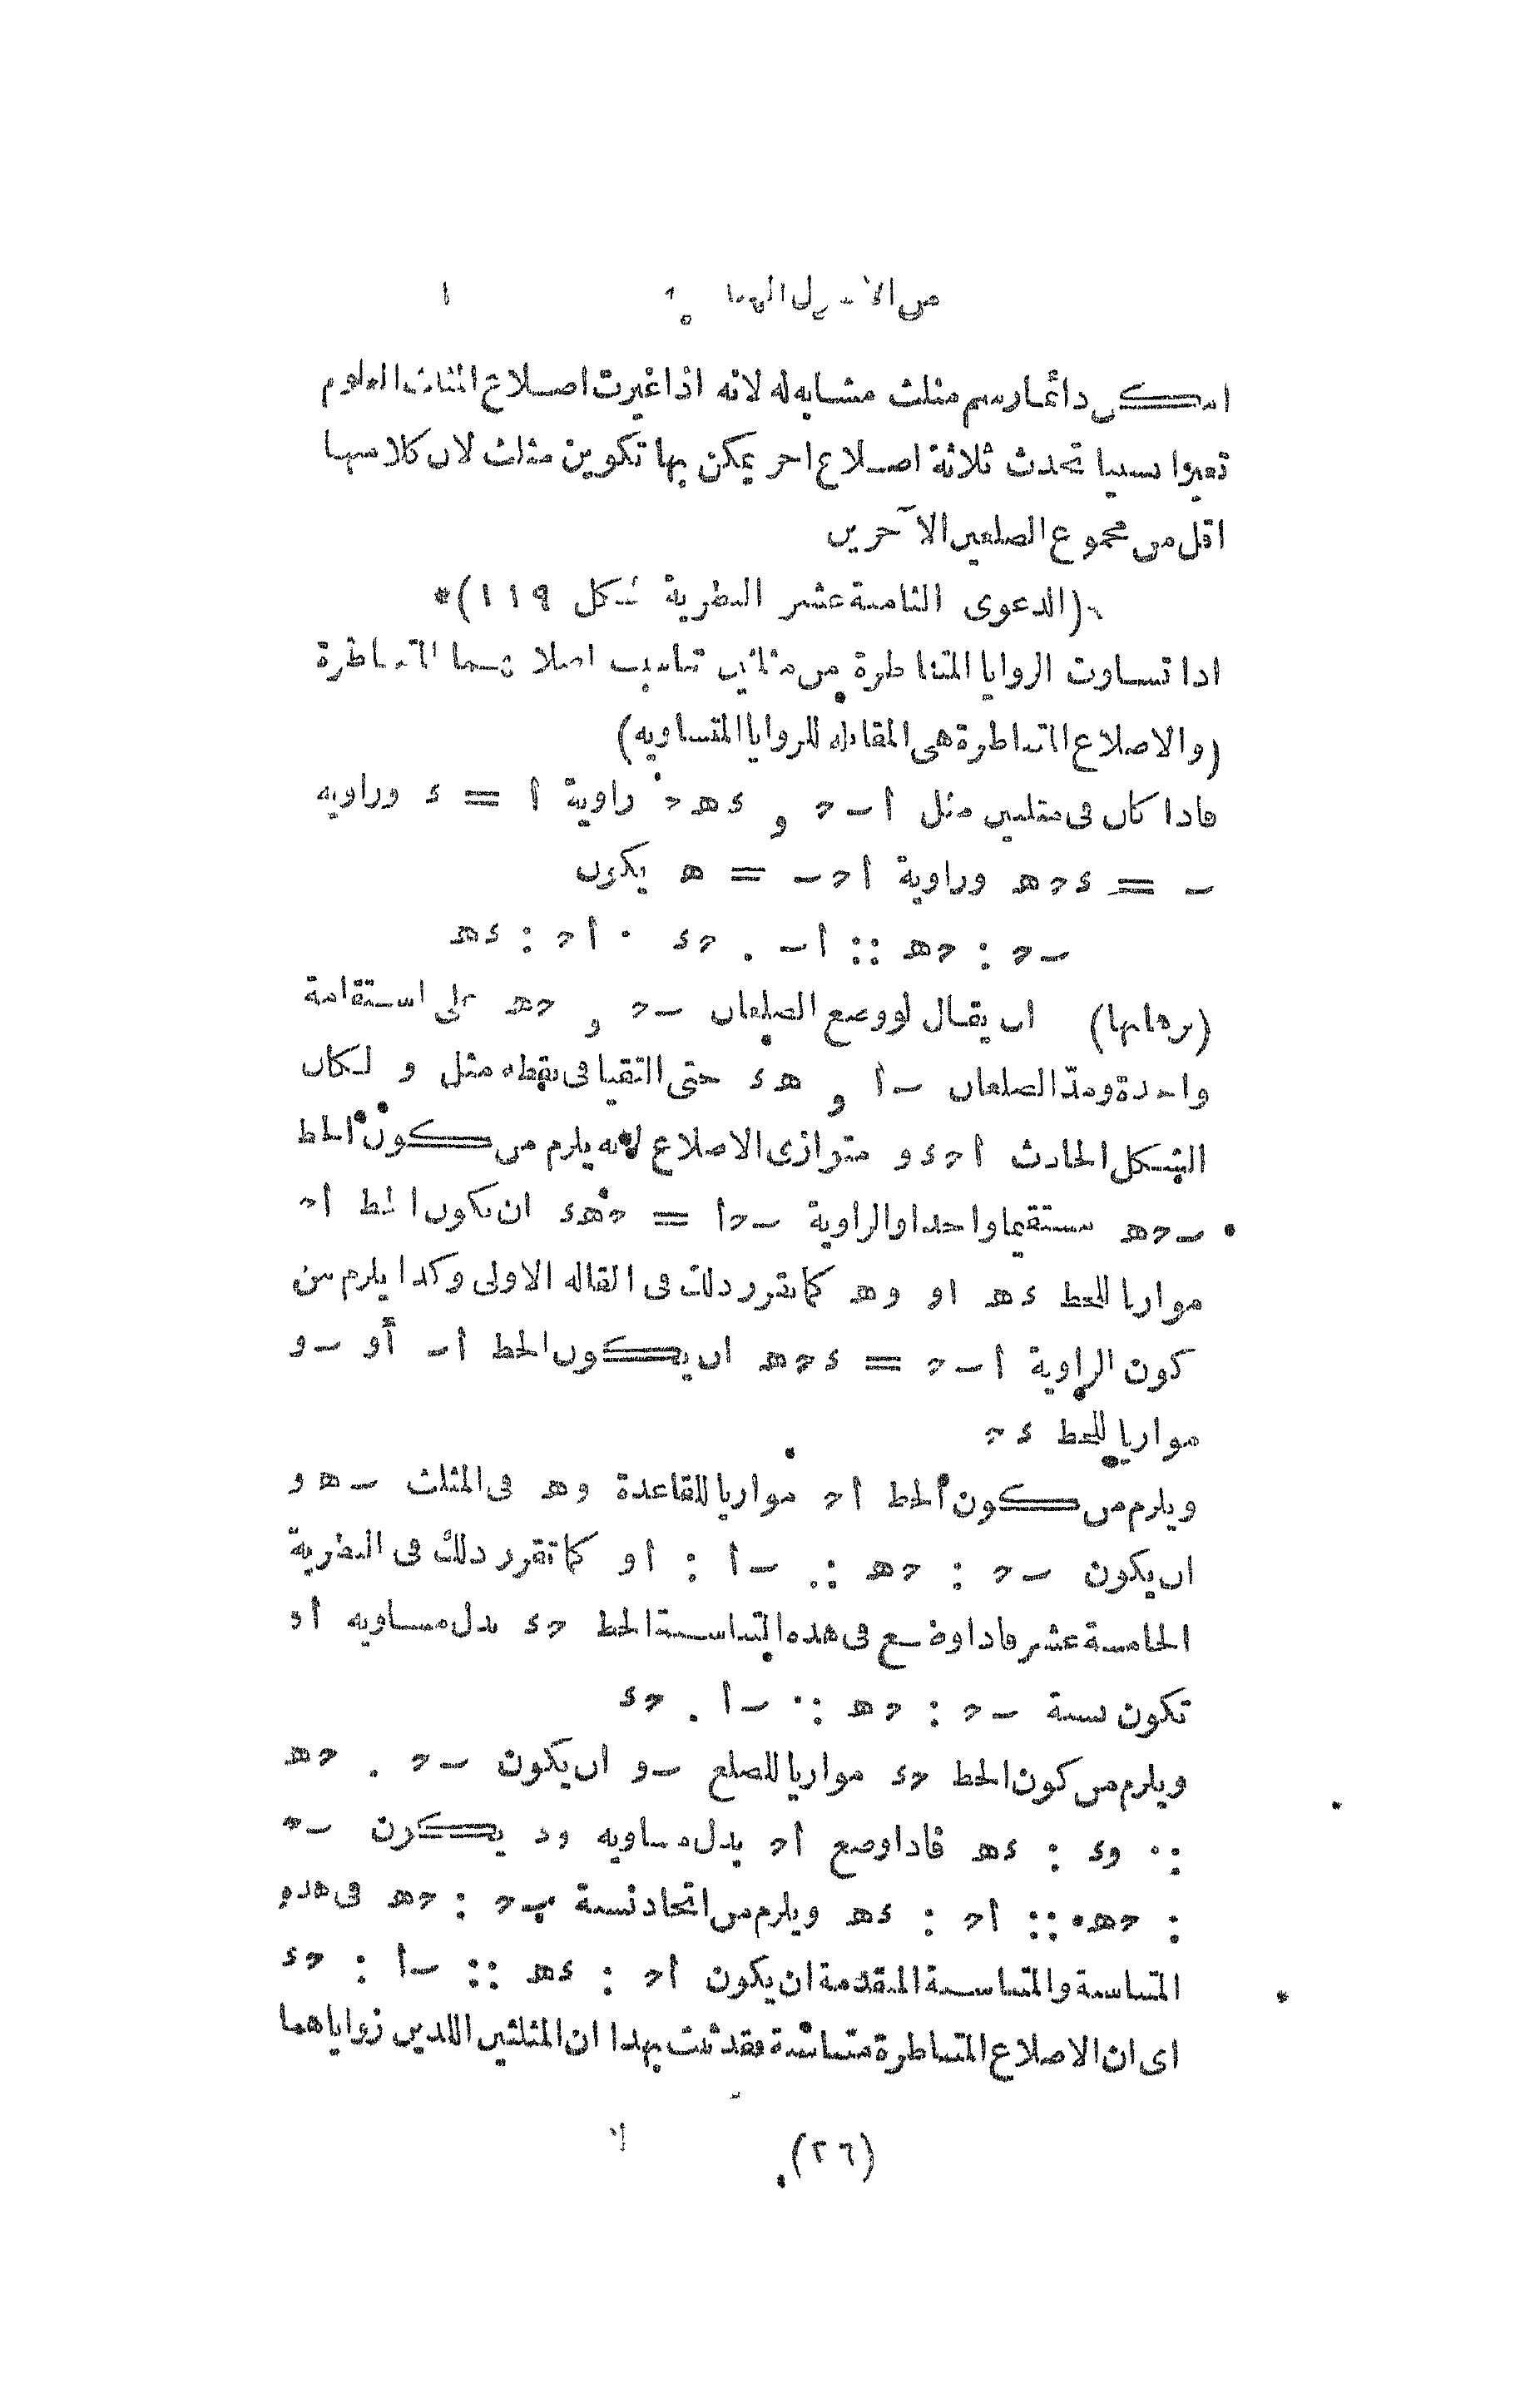 من الاصول الهندسية
امكن دائما رسم مثلث مشابه له لانه اذا غيرت اضلاع المثلث المعلوم
تغيرا نسبيا تحدث ثلاثة اضلاع اخر يمكن بها تكوين مثلث لان كلا منها
اقل من مجموع الضلعين الاخرين
(الدعوى الثامنة عشر النظرية شكل ١١٩)*
اذا تساوت الزوايا المتناظرة من مثلثين تناسبت اضلاعهما المتناظرة
(والاضلاع المتناظرة هى المقابلة للزوايا المتساوية)
فاذا كان فى مثلثين مثل أ ب ح و ء ه ح زاوية أ = ء وزاوية
ب = ء ح ه وزاوية أ ح ب = ه يكون
ب ح : ح ه :: أ ب : ح ء : أ ح : ء ه
(برهانها) ان يقال لو وضع الضلعان ب ح و ح ه على استقامة
واحدة ومدّ الضلعان ب أ و ه ء حتى التقيا فى نقطة مثل و لكان
الشكل الحادث أ ح ء و متوازى الاضلاع لانه يلزم من كون الخط
ب ح ه مستقيما واحدا والزاوية ب ح أ = ح ه ء ان يكون الخط أ ح
موازيا للخط ء ه او و ه كما تقرر ذلك فى المقالة الاولى وكذا يلزم من
كون الزاوية أ ب ح = ء ح ه ان يكون الخط أ ب أو ب و
موازيا للخط ء ح
ويلزم من كون الخط أ ح موازيا للقاعدة و ه فى المثلث ب ه و
ان يكون ب ح : ح ه :: ب أ : أ و كما تقرر ذلك فى النظرية
الخامسة عشر فاذا وضع فى هذه المتناسبة الخط ح ء بدل مساويه أ و
تكون نسبة ب ح : ح ه :: ب أ : ح ء
ويلزم من كون الخط ح ء موازيا للضلع ب و ان يكون ب ح : ح ه
:: و ء : ء ه فاذا وضع أ ح بدل مساويه و ء يكون ب ح
: ح ه :: أ ح : ء ه ويلزم من اتحاد نسبة ب ح : ح ه فى هذه
المتناسبة والمتناسبة المتقدمة ان يكون أ ح : ء ه :: ب أ : ح ء
اى ان الاضلاع المتناظرة متناسبة فقد ثبت بهذا ان المثلثين اللذين زواياهما
(٢٦)